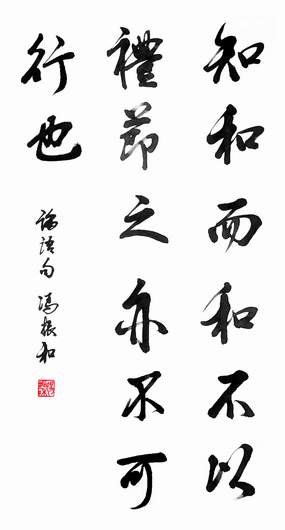 知和而和不以
禮節之亦不可
行也
論語句 馮振和